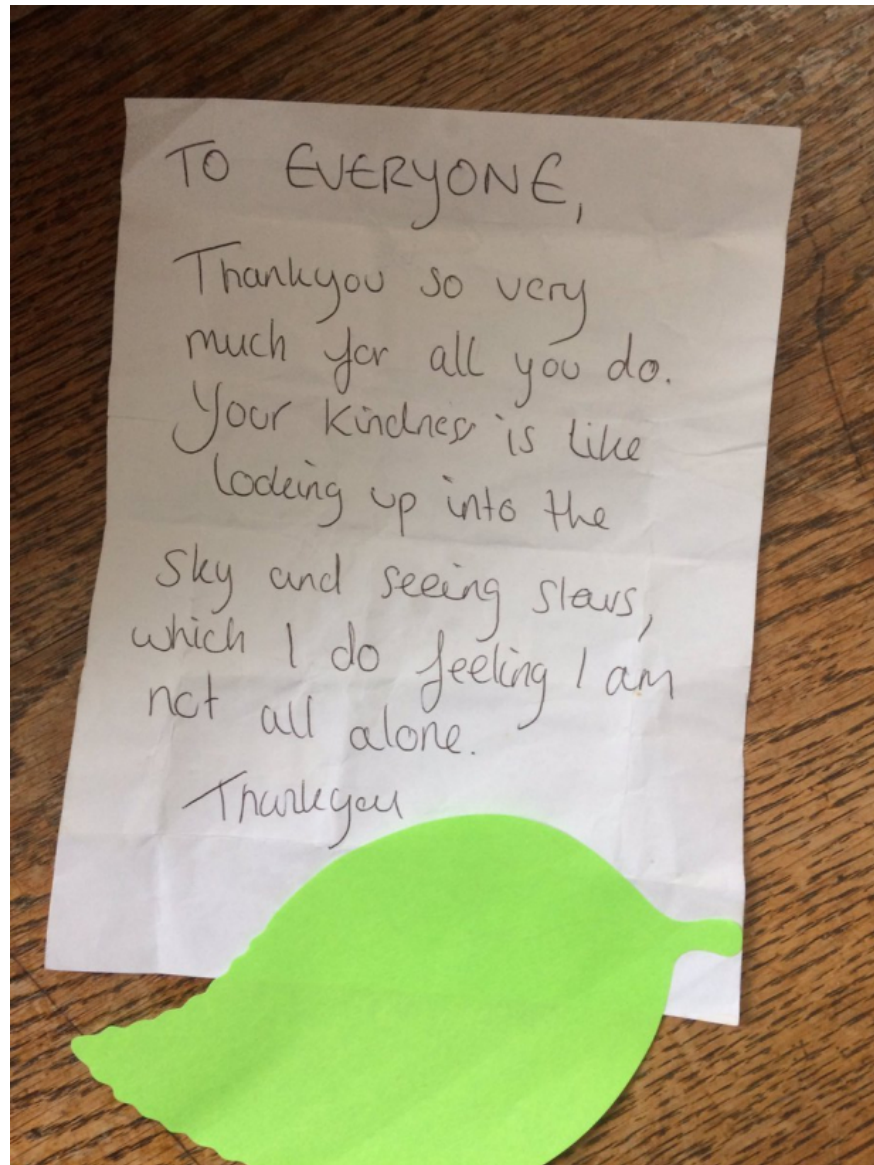 TO EVERYONE,
Thankyou so very
much for all you do.
Your kindness is like
looking up into the
sky and seeing stars,
which I do feeling I am
not all alone.
Thankyou